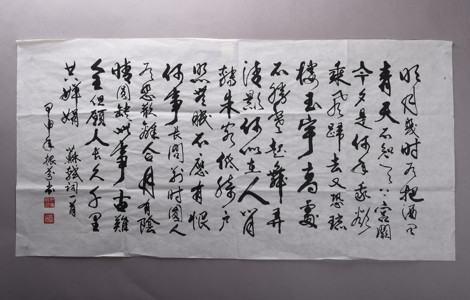 明月幾时有把酒问
青天不知天上宫闕
今夕是何年我欲
乘风歸去又恐琼
楼玉宇高處
不勝寒起舞弄
清影何似在人间
轉朱阁低绮户
照無眠不應有恨
何事長向别时圆人
有悲歡離合月有陰
晴圆缺此事古難
全但願人长久千里
共嬋娟 蘇軾词一首
甲申年振芬书